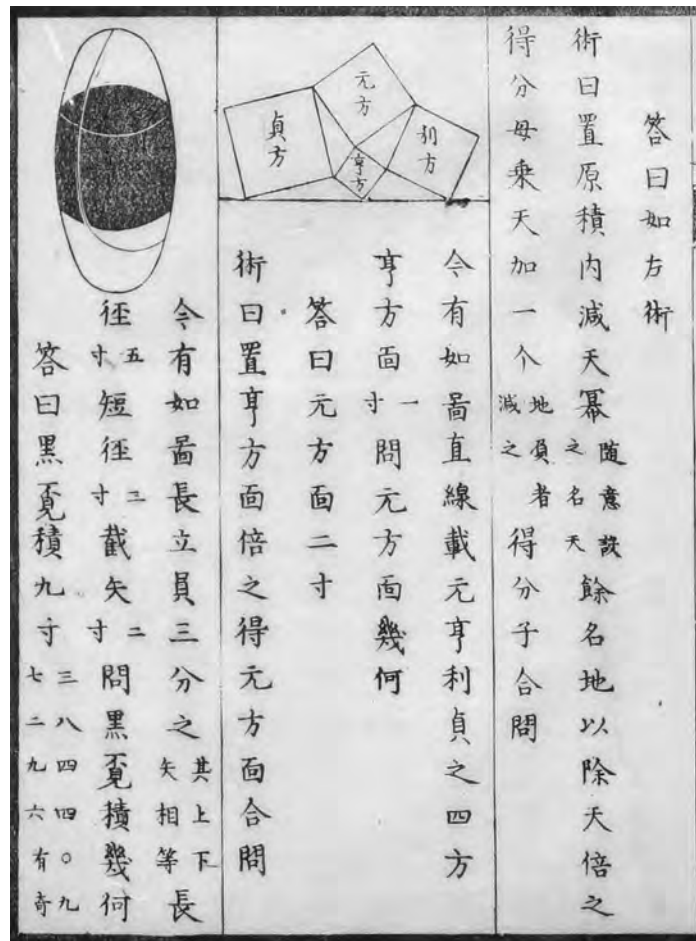 答曰如左術
術曰置原積内減天冪隨意設之名天餘名地以除天倍之
得分母乘天加一个地負者減之得分子合問
元方
利方
亨方
貞方
今有如啚直線載元亨利貞之四方
亨方面一寸問元方面幾何
答曰元方面二寸
術曰置亨方面倍之得元方面合問
今有如啚長立員三分之其上下矢相等長
徑五寸短徑三寸截矢二寸問黒覔積幾何
答曰黒覔積九寸三八四四〇九七二九六有奇